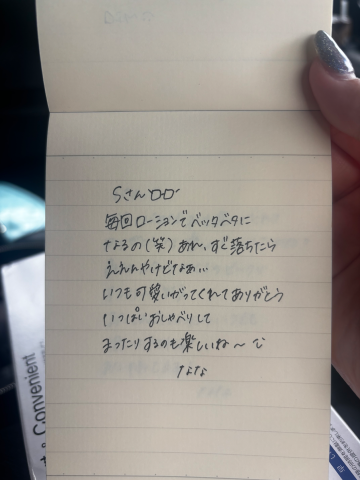 Sさんへ
毎回ローションでベッタベタに
なるの(笑)あれ、すぐ落ちたら
ええんやけどなぁ…
いつも可愛いがってくれてありがとう
いっぱいおしゃべりして
まったりするのも楽しいね〜
なな
Convenient